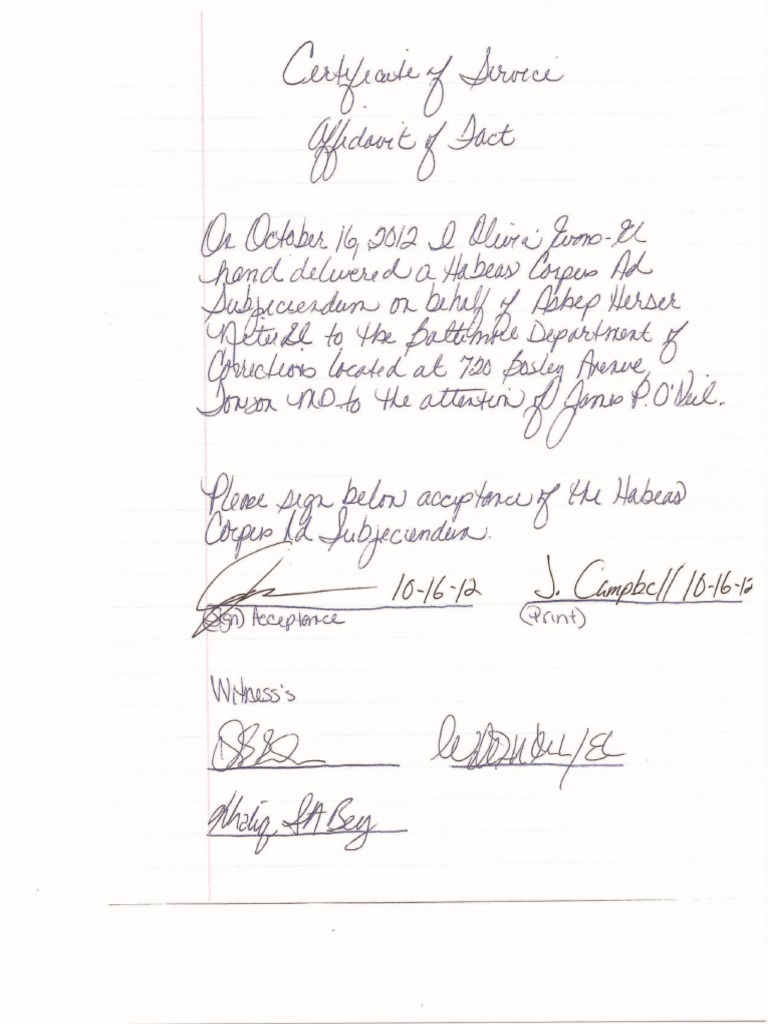 Certificate of Service
Affidavit of Fact
On October 16, 2012 I Olivia Evans-El
hand delivered a Habeas Corpus Ad
Subjeciendum on behalf of
to the Baltimore Department of
Corrections located at 720 Bosley Avenue,
Towson MD to the attention of James P. O'Neil.
Please sign below acceptance of the Habeas
Corpus Ad Subjeciendum.
10-16-12 J. Campbell 10-16-12
(Sign) Acceptance (Print)
Witness's
Khaliq SA Bey